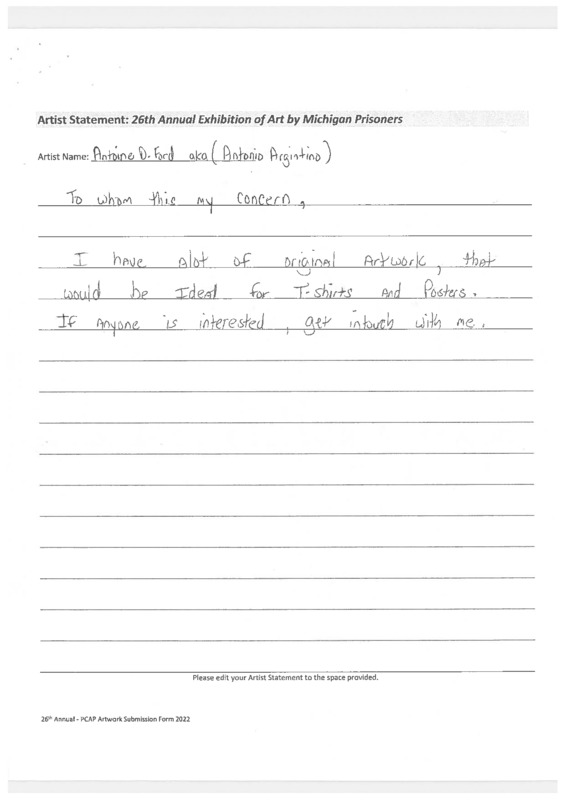 Artist Statement: 26th Annual Exhibition of Art by Michigan Prisoners
Artist Name: Antoine D. Ford aka (Antonio Argintino)
To whom this my concern,
I have alot of original Artwork, that
would be Ideal for T-shirts and Posters.
If Anyone is interested, get intouch with me.
Please edit your Artist Statement to the space provided.
26th Annual - PCAP Artwork Submission Form 2022